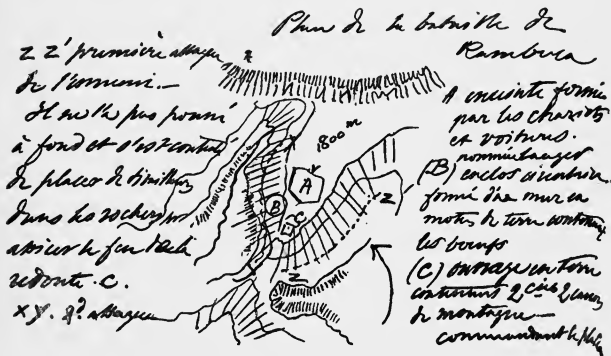 Plan de la bataille de
Rambuca
z z' première attaque
de l'ennemi.—
Il ne l'a pas poussé
à fond et s'est contenté
de placer de
dans les rochers
le feu de la
redoute. C.
x y. 2e attaque
A enceinte formée
par les chariots
et voitures.
(B) enclos
formé d'un mur en
mottes de terre contenant
les boeufs
(C) ouvrage en terre
contenant 2 cies 2 canons
de montagne—
commandant le
1800 m
A
B
C
z
z
x